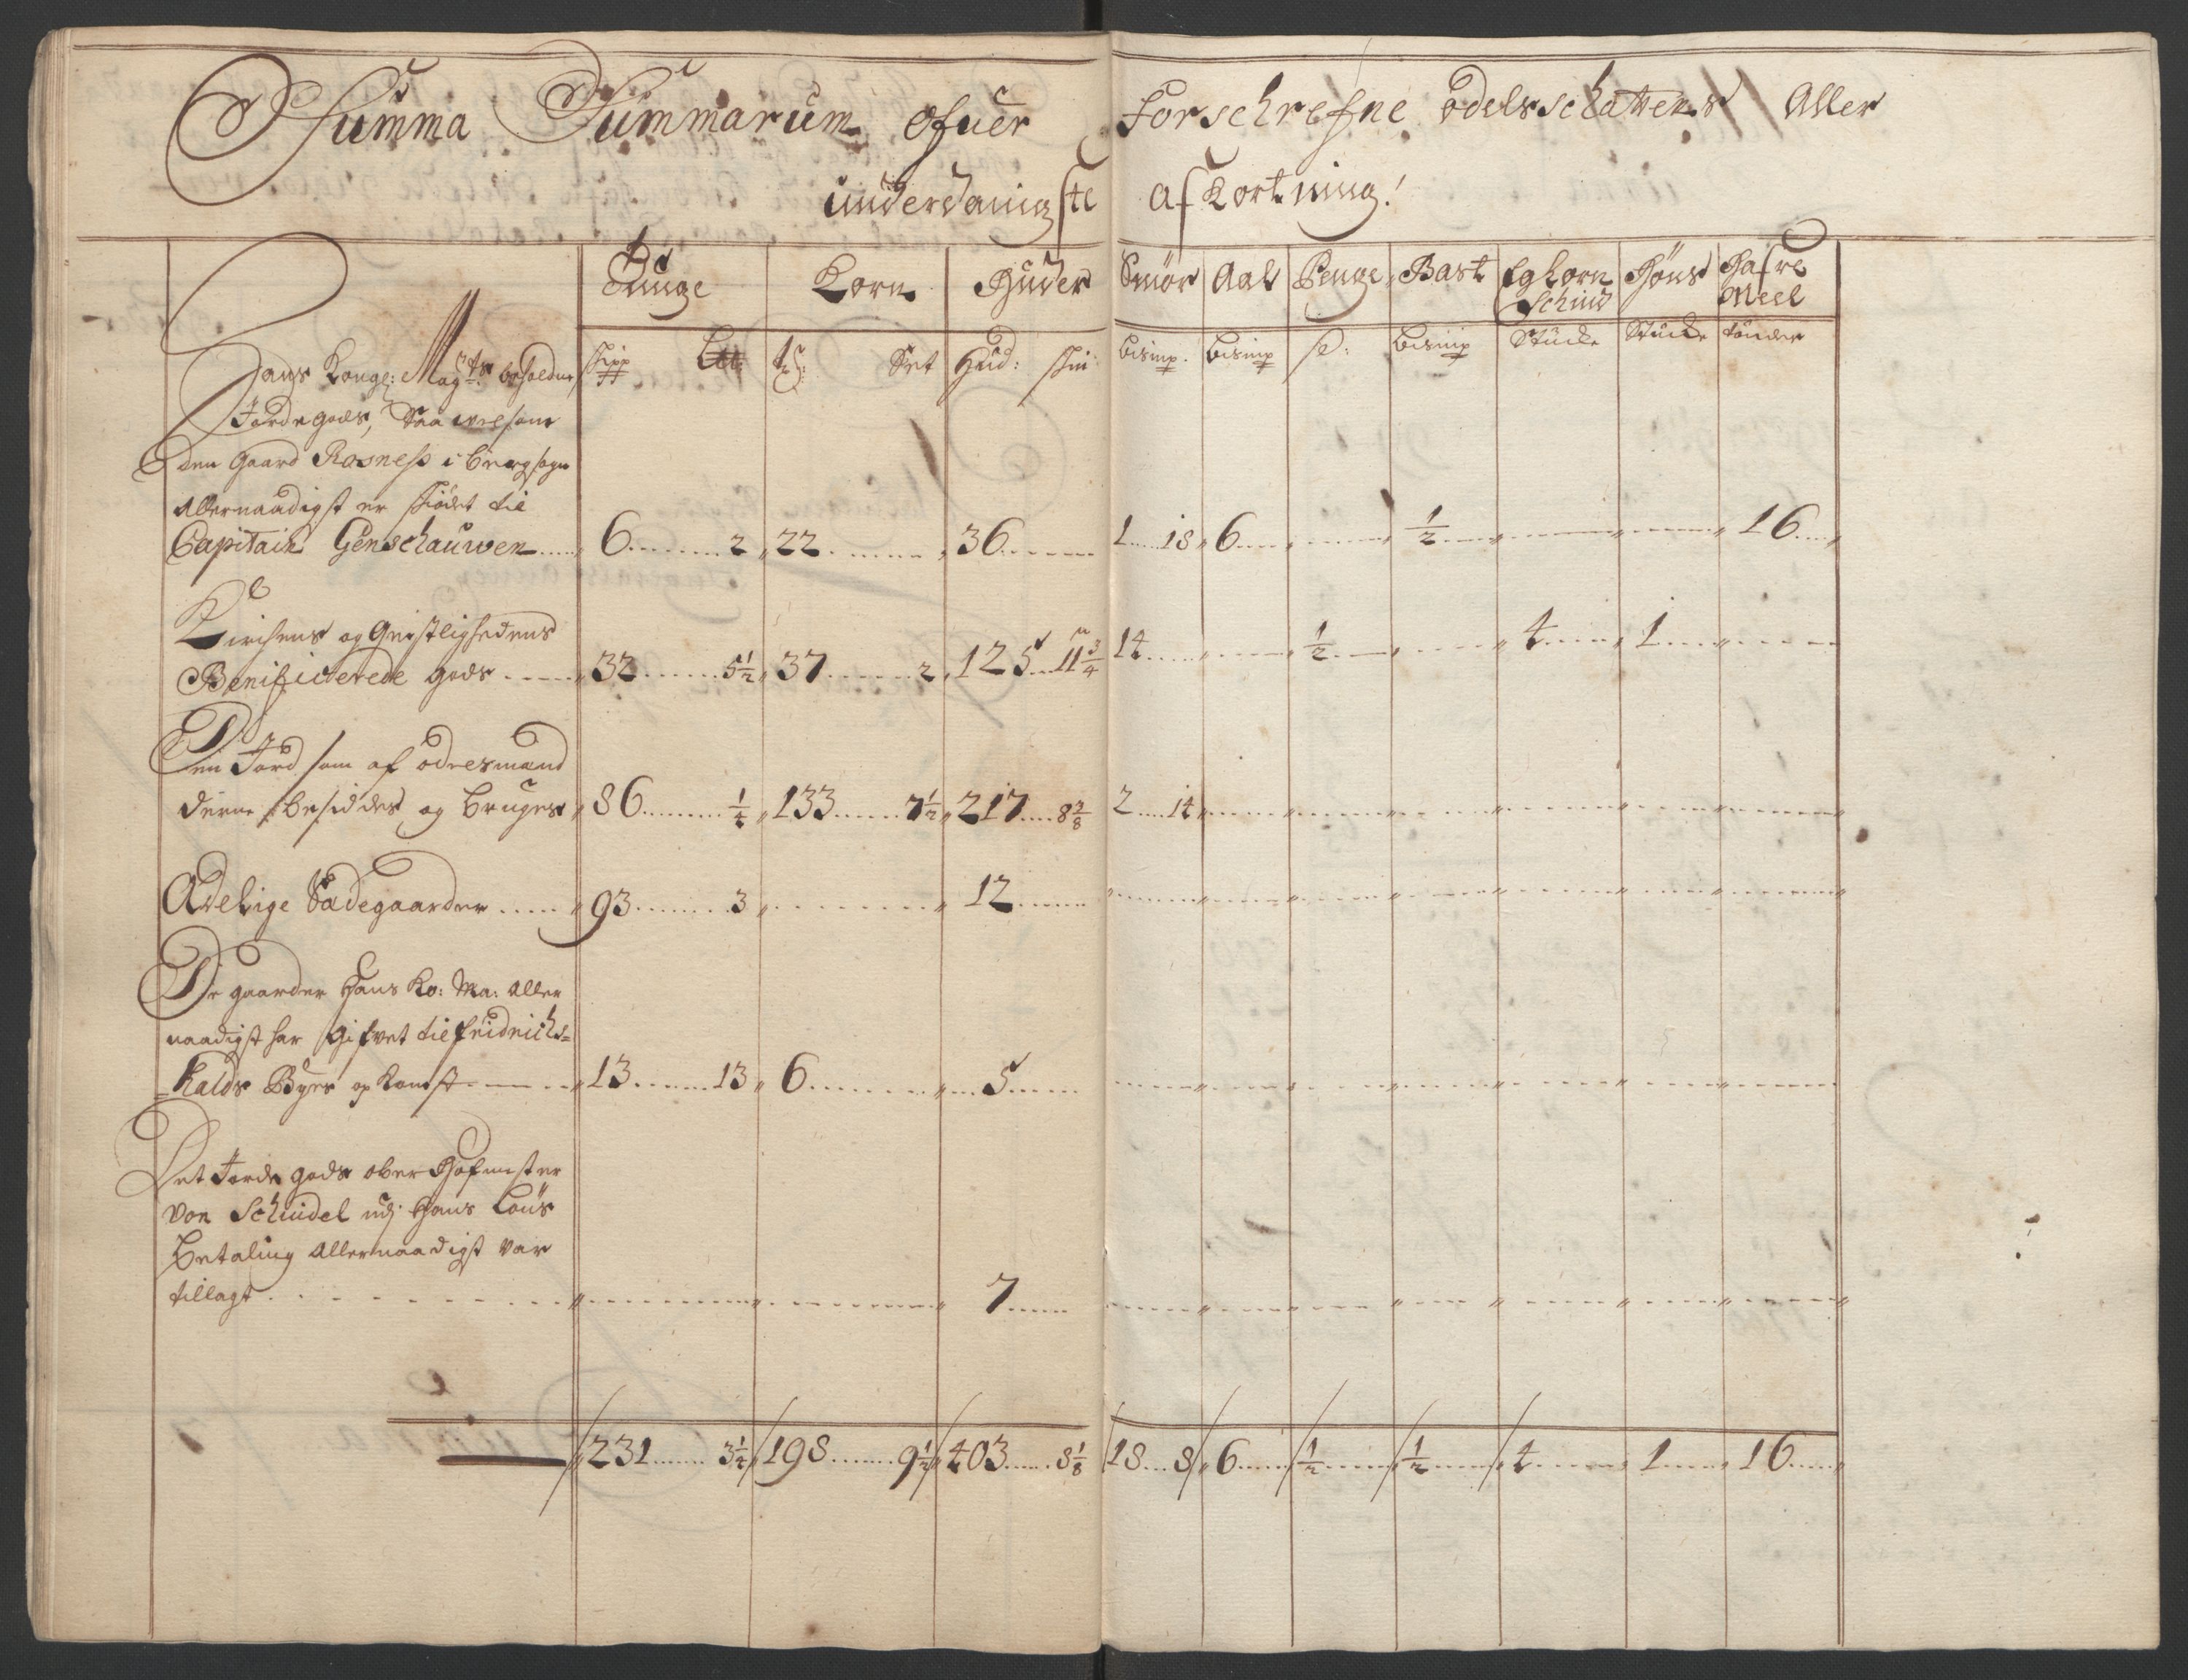 Summa Summarum ofuer forschrefne odelsschattens Aller
underdanigste afkortning!
Tunge Korn Huder Smör Aal Penge Bast Eghorn Schind Höns Hafre Meel
Skipp Set Hud: skin: bismp. bismp bismp Stücke Stücke tønder
Hans Kongl: Mayts beholdne
Jordegods, Saa vel som
den Gaard Rosness i Bergsogn
Allernaadigst er skiødet til
Capitain Genschauwen 6 2 22 36 1 18 6 1/2 16
Kirchens og Geistlighedens
Benificerede gods 32 5 1/2 37 2 125 11 3/4 14 1/2 4 1
Den Jord som af odelsmænd
derne besiddes og bruges 86 1/4 133 7 1/2 217 8 3/8 2 14
Adelige Sædegaarder 93 3 12
De gaarder Hans Ko: Ma: Aller
naadigst har gifvet til fridrichs=
=halds Byes opkomst 13 13 6 5
Det Jorde gods ober Hofmester
von Schindel udj Hans Løns
betaling Allernaadigst var
tillagt 7
231 3 1/4 198 9 1/2 403 8 1/8 18 8 6 1/2 1/2 4 1 16